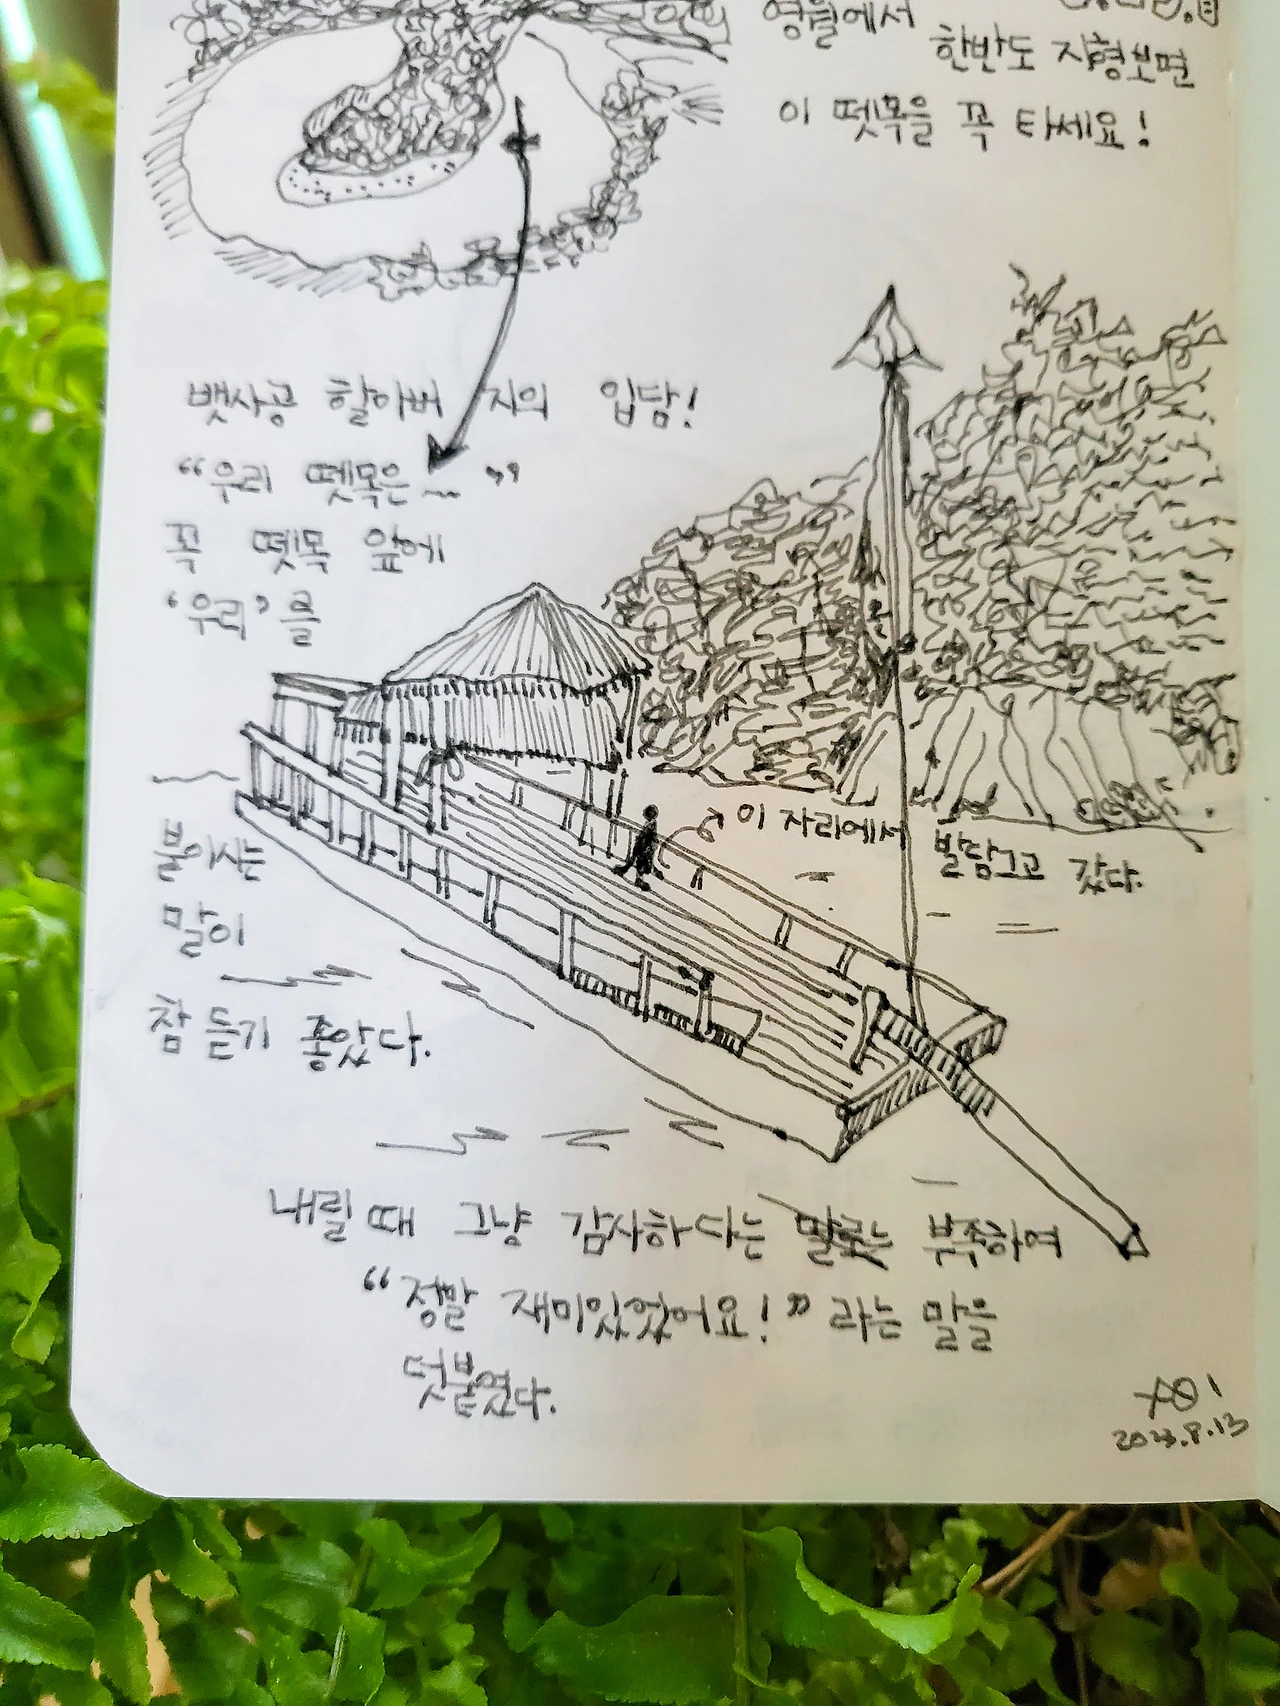 영월에서
한반도 지형보면
이 뗏목을 꼭 타세요!
뱃사공 할아버지의 입담!
“우리 뗏목은 ~ ”
꼭 뗏목 앞에
‘우리’를
붙이시는
말이
참 듣기 좋았다.
이 자리에서 발담그고 갔다.
내릴 때 그냥 감사하다는 말로는 부족하여
“정말 재미있었어요!” 라는 말을
덧붙였다.
2023.8.13